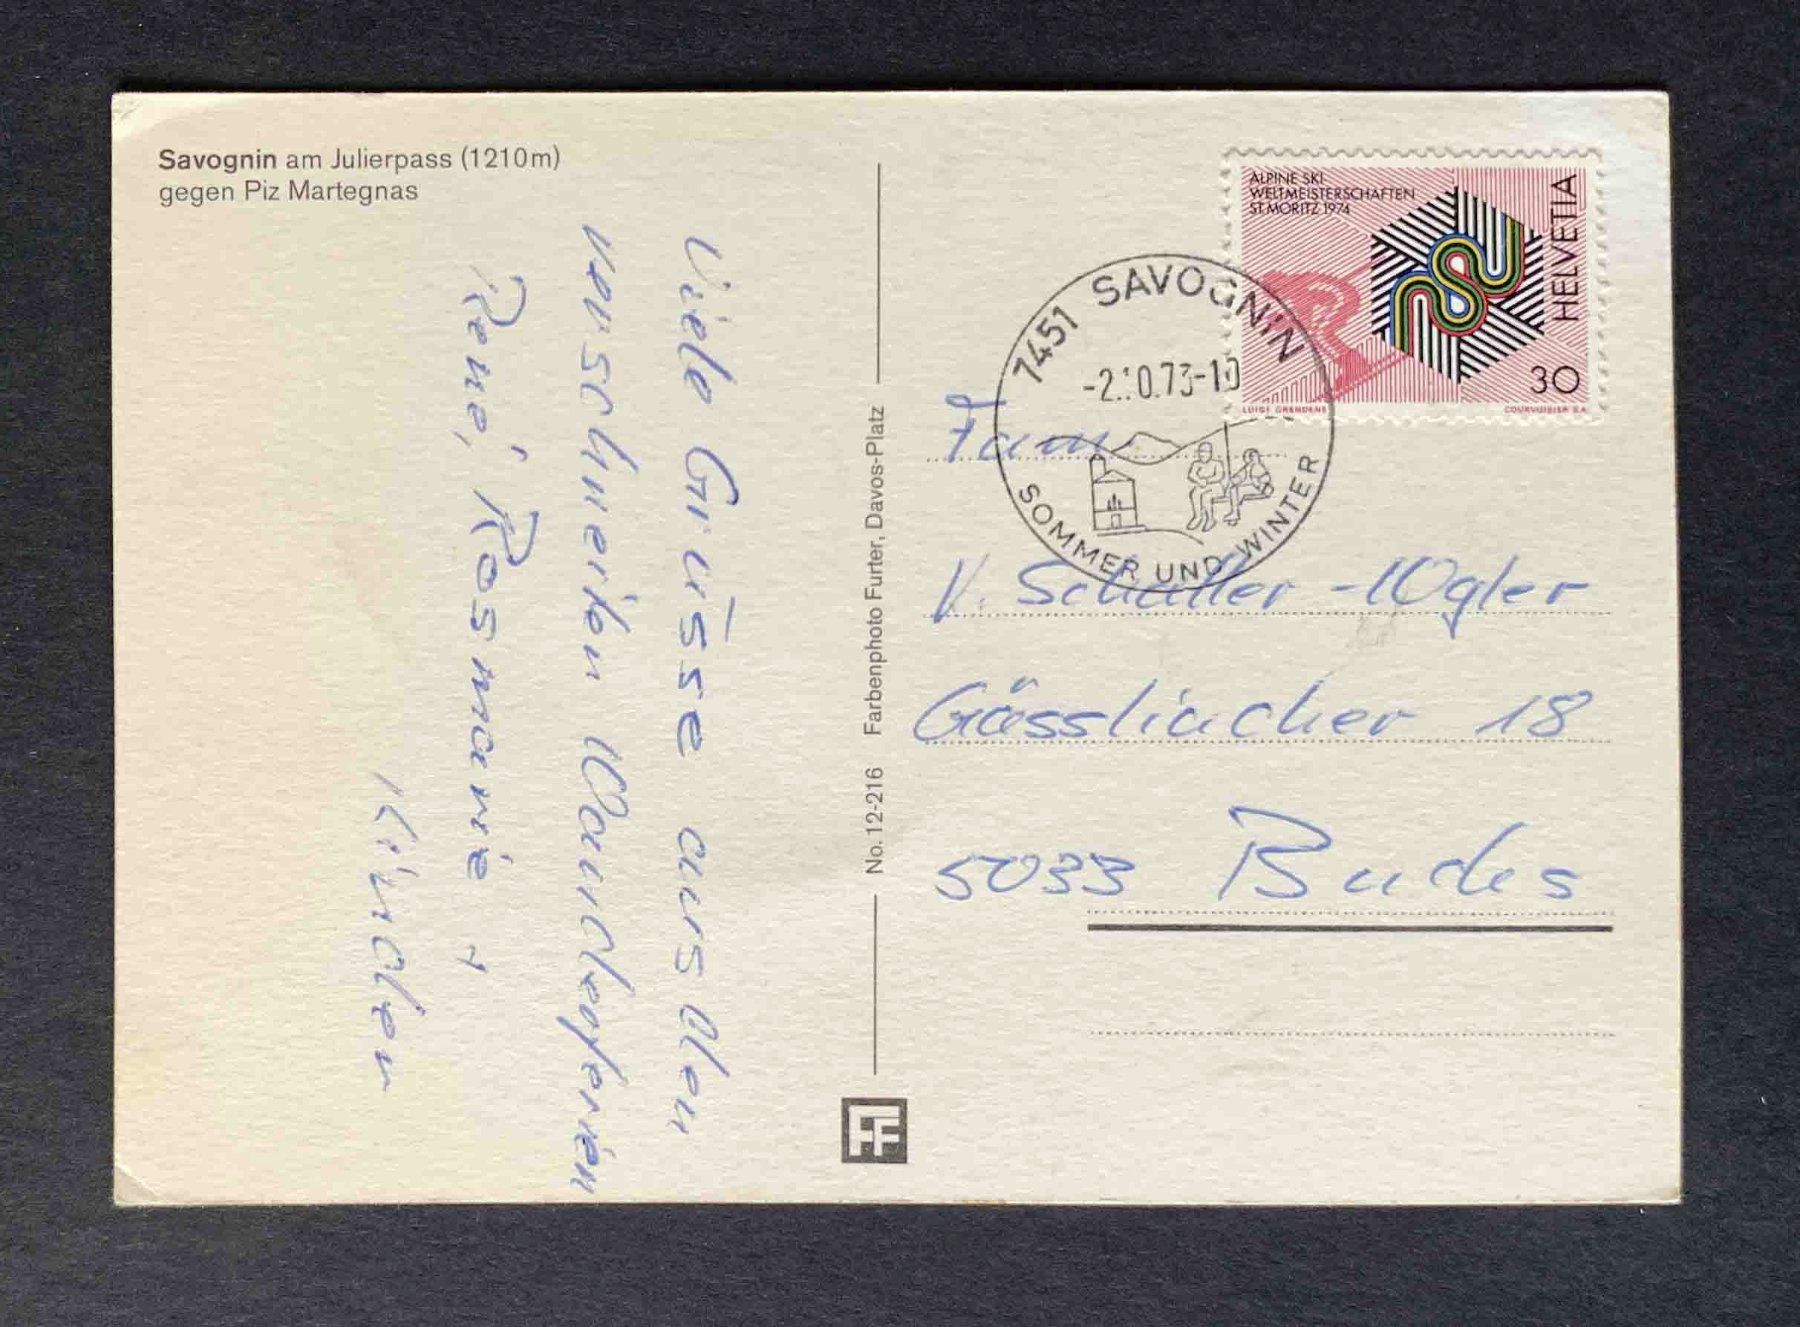 Savognin am Julierpass (1210m)
gegen Piz Martegnas
Viele Grüsse aus den
verschneiten Wanderferien
René, Rosmarie +
Kinder
No. 12-216 Farbenphoto Furter, Davos-Platz
FF
ALPINE SKI
WELTMEISTERSCHAFTEN
ST. MORITZ 1974
HELVETIA
30
LUIGI GRENDENE
COURVOISIER S.A.
7451 SAVOGNIN
-2.10.73-10
SOMMER UND WINTER
Fam.
V. -Wogler
Gässliacher 18
5033 Buchs